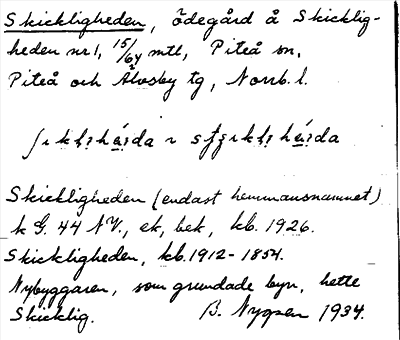 Skickligheden, ödegård å Skicklig-
heden nr 1, 15/64 mtl, Piteå sn,
Piteå och Älvsby tg, Norrb. l.
Skickligheden (endast hemmansnamnet)
k G. 44 NV., ek, bek, kb. 1926.
Skickligheden, kb. 1912-1854.
Nybyggaren, som grundade byn, hette
Skicklig. B. Nygren 1934.